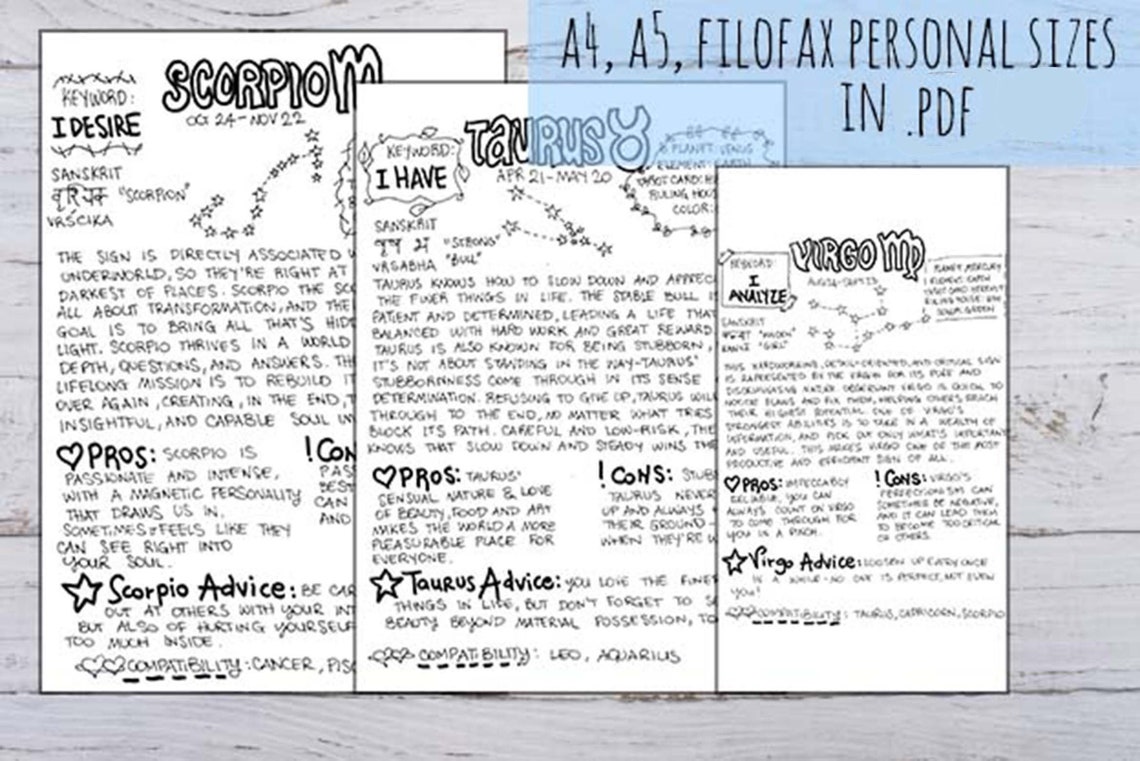 A4, A5, FILOFAX PERSONAL SIZES
IN .PDF
SCORPIO
OCT 24-NOV 22
KEYWORD:
I DESIRE
SANSKRIT
"SCORPION"
VRŚCIKA
THE SIGN IS DIRECTLY ASSOCIATED
UNDERWORLD, SO THEY'RE RIGHT AT
DARKEST OF PLACES. SCORPIO THE
ALL ABOUT TRANSFORMATION, AND THE
GOAL IS TO BRING ALL THAT'S
LIGHT. SCORPIO THRIVES IN A WORLD
DEPTH, QUESTIONS, AND ANSWERS.
LIFELONG MISSION IS TO REBUILD
OVER AGAIN, CREATING, IN THE END,
INSIGHTFUL, AND CAPABLE SOUL
♡PROS: SCORPIO IS
PASSIONATE AND INTENSE,
WITH A MAGNETIC PERSONALITY
THAT DRAWS US IN.
SOMETIMES IT FEELS LIKE THEY
CAN SEE RIGHT INTO
YOUR SOUL.
! CON
PAS
BEST
CAN
AND
☆ Scorpio Advice: BE CAR
OUT AT OTHERS WITH YOUR INT
BUT ALSO OF HURTING YOURSELF
TOO MUCH INSIDE.
COMPATIBILITY: CANCER, PISC
TAURUS ♉
APR 21-MAY 20
KEYWORD:
I HAVE
PLANET: VENUS
ELEMENT: EARTH
TAROT CARD: H
RULING HOU
COLOR:
SANSKRIT
"STRONG"
VRSABHA "BULL"
TAURUS KNOWS HOW TO SLOW DOWN AND APPREC
THE FINER THINGS IN LIFE. THE STABLE BULL
PATIENT AND DETERMINED, LEADING A LIFE THAT
BALANCED WITH HARD WORK AND GREAT REWARD
TAURUS IS ALSO KNOWN FOR BEING STUBBORN,
IT'S NOT ABOUT STANDING IN THE WAY-TAURUS'
STUBBORNNESS COME THROUGH IN ITS SENSE
DETERMINATION. REFUSING TO GIVE UP, TAURUS WILL
THROUGH TO THE END, NO MATTER WHAT TRIES
BLOCK ITS PATH. CAREFUL AND LOW-RISK, THE
KNOWS THAT SLOW DOWN AND STEADY WINS THE
♡PROS: TAURUS'
SENSUAL NATURE & LOVE
OF BEAUTY, FOOD AND ART
MAKES THE WORLD A MORE
PLEASURABLE PLACE FOR
EVERYONE.
! CONS: STUB
TAURUS NEVER
UP AND ALWAYS
THEIR GROUND-
WHEN THEY'RE W
☆ Taurus Advice: YOU LOVE THE FINE
THINGS IN LIFE, BUT DON'T FORGET TO
BEAUTY BEYOND MATERIAL POSSESSION, TO
COMPATIBILITY: LEO, AQUARIUS
VIRGO ♍
KEYWORD:
I
ANALYZE
PLANET: MERCURY
ELEMENT: EARTH
SANSKRIT
"MAIDEN"
"GIRL"
THIS HARDWORKING, DETAIL-ORIENTED, AND CRITICAL SIGN
IS REPRESENTED BY THE VIRGIN FOR ITS PURE AND
DISCRIMINATING NATURE. OBSERVANT VIRGO IS QUICK TO
NOTICE FLAWS AND FIX THEM, HELPING OTHERS REACH
THEIR HIGHEST POTENTIAL. ONE OF VIRGO'S
STRONGEST ABILITIES IS TO TAKE IN A WEALTH OF
INFORMATION, AND PICK OUT ONLY WHAT'S IMPORTANT
AND USEFUL. THIS MAKES VIRGO ONE OF THE MOST
PRODUCTIVE AND EFFICIENT SIGN OF ALL.
♡PROS: IMPECCABLY
RELIABLE, YOU CAN
ALWAYS COUNT ON VIRGO
TO COME THROUGH FOR
YOU IN A PINCH.
! CONS: VIRGO'S
PERFECTIONISM CAN
SOMETIME BE NEGATIVE,
AND IT CAN LEAD THEM
TO BECOME TOO CRITICAL
OF OTHERS.
☆ Virgo Advice: LOOSEN UP EVERY ONCE
IN A WHILE-NO ONE IS PERFECT, NOT EVEN
YOU!
COMPATIBILITY: TAURUS, CAPRICORN, SCORPIO